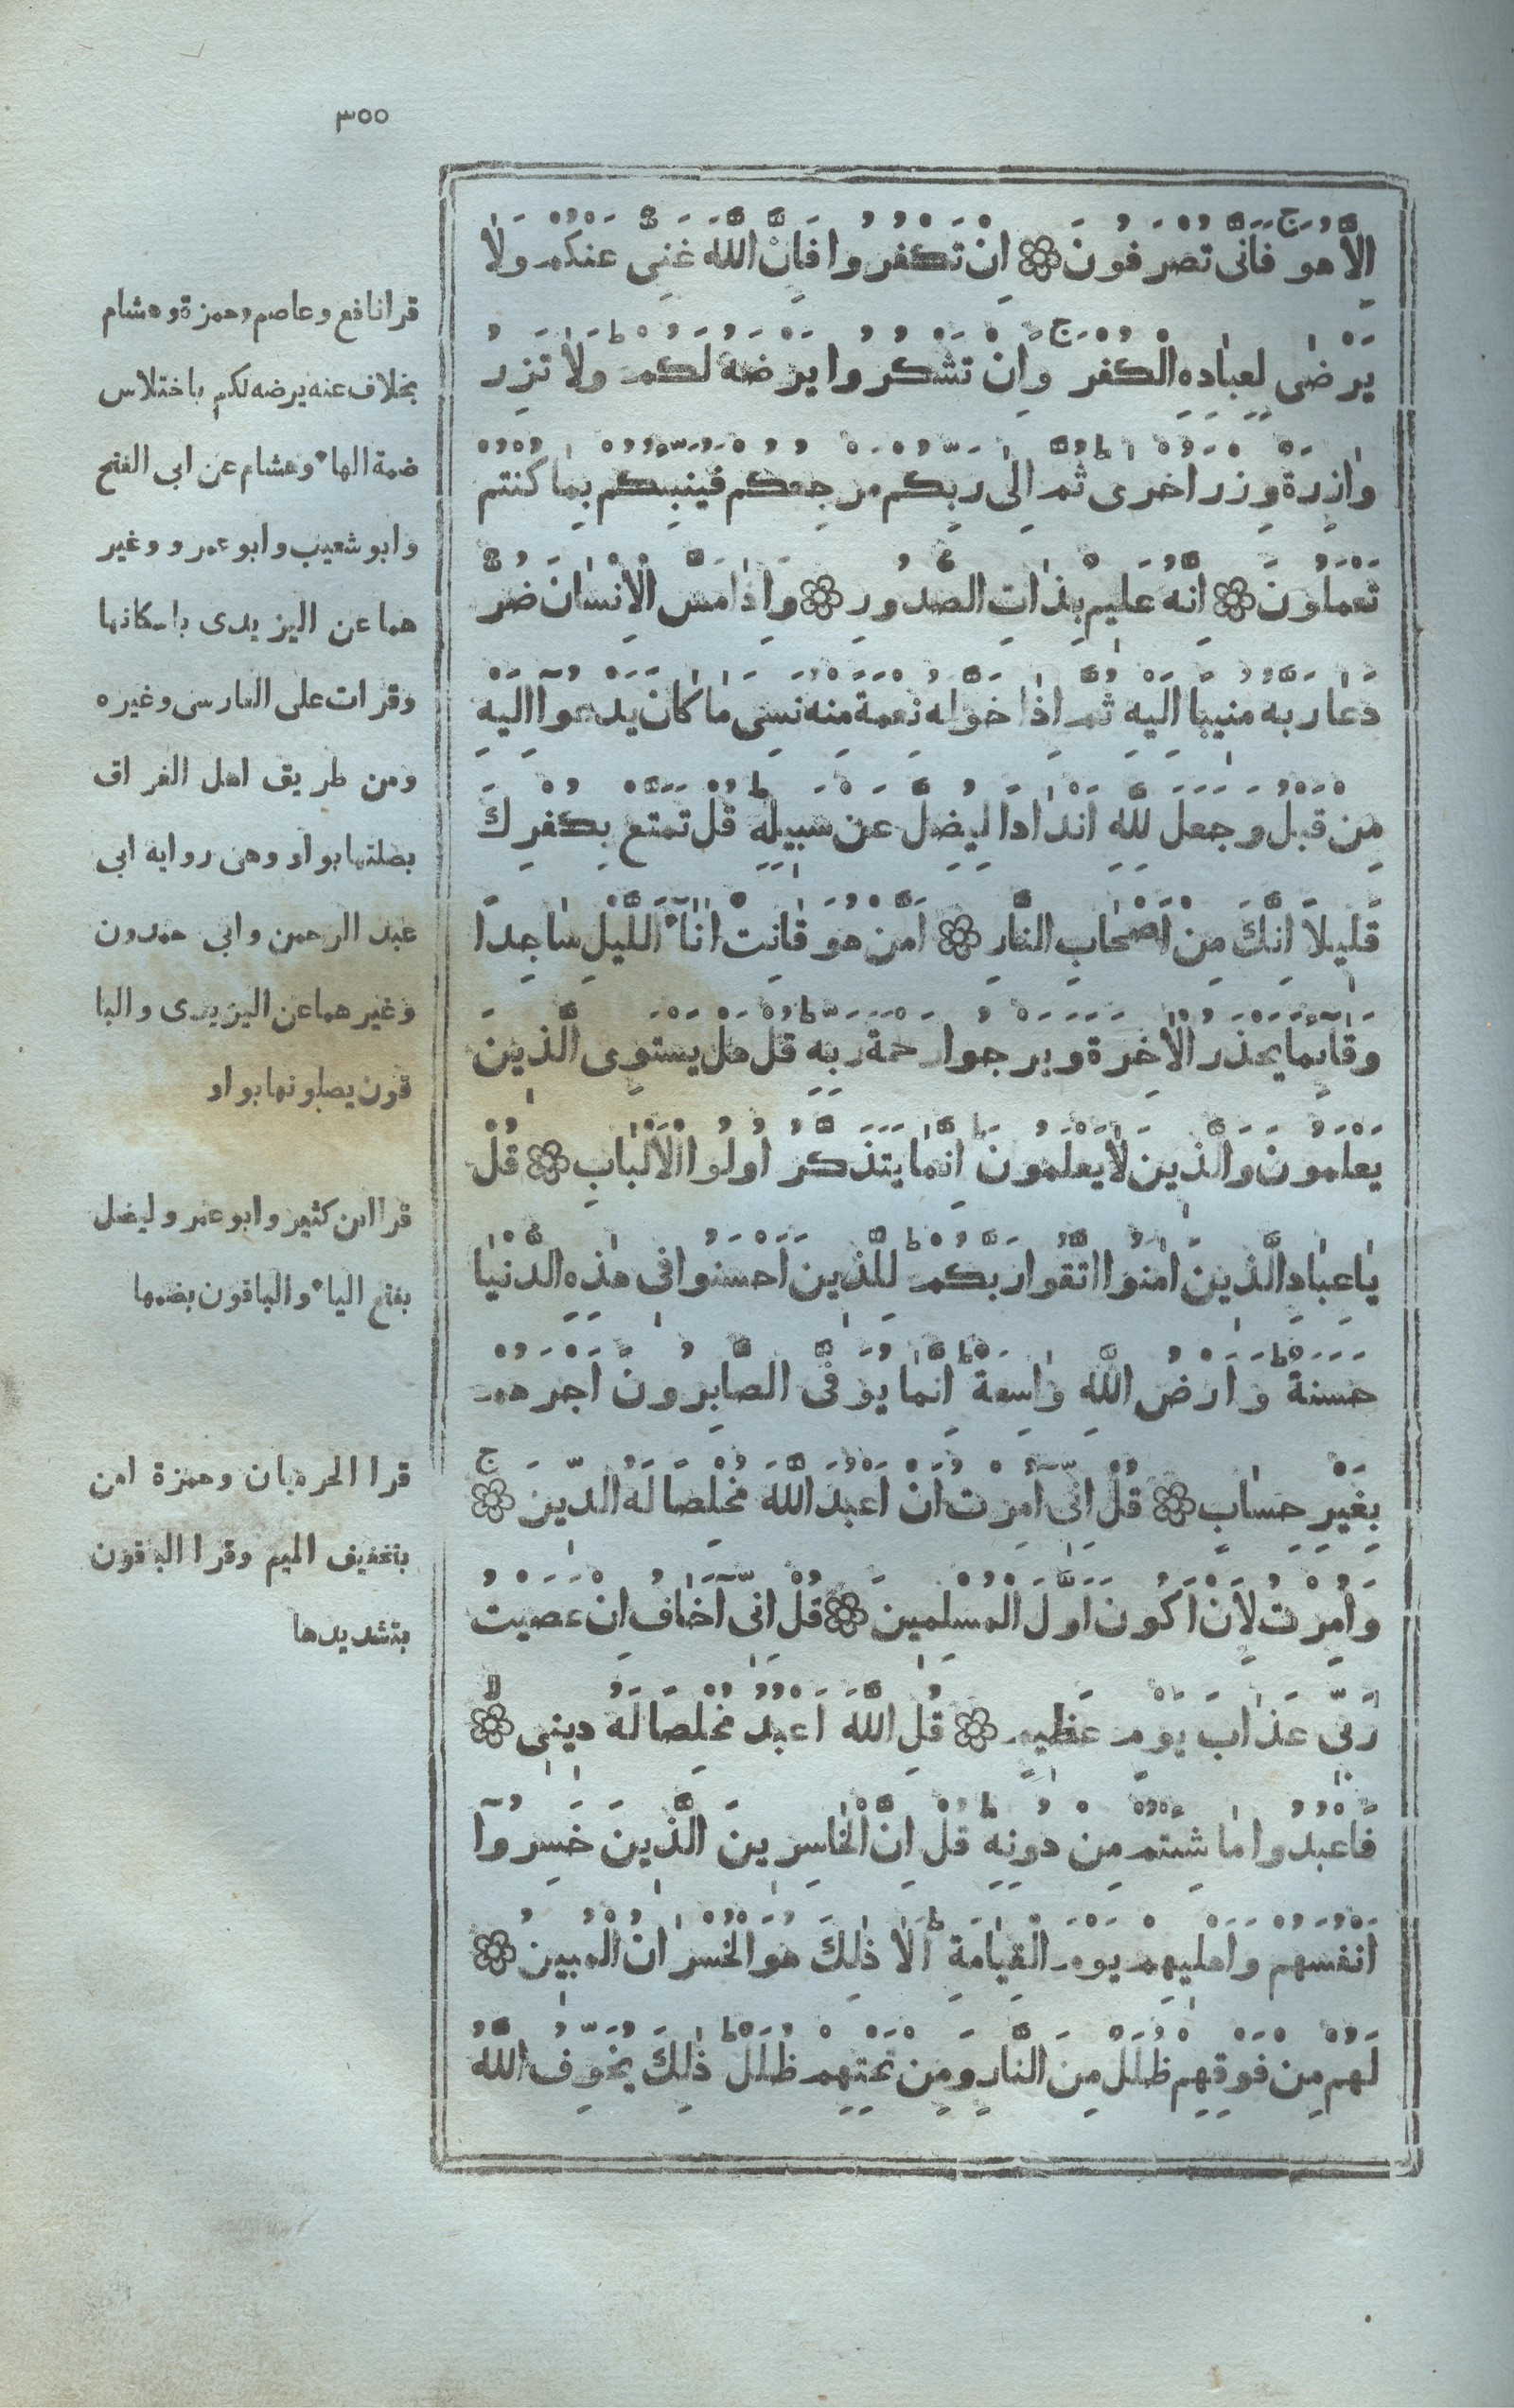 ٣٥٥
اِلَّا هُوَ ج فَاَنَّى تُصْرَفُونَ ۞ اِنْ تَكْفُرُوا فَاِنَّ اللَّهَ غَنِىٌّ عَنْكُمْ وَلَا
يَرْضٰى لِعِبَادِهِ الْكُفْرَ ج وَاِنْ تَشْكُرُوا يَرْضَهُ لَكُمْ ط وَلَا تَزِرُ
وَازِرَةٌ وِزْرَ اُخْرٰى ط ثُمَّ اِلٰى رَبِّكُمْ مَرْجِعُكُمْ فَيُنَبِّئُكُمْ بِمَا كُنْتُمْ
تَعْمَلُونَ ۞ اِنَّهُ عَلِيمٌ بِذَاتِ الصُّدُورِ ۞ وَاِذَا مَسَّ الْاِنْسَانَ ضُرٌّ
دَعَا رَبَّهُ مُنِيبًا اِلَيْهِ ثُمَّ اِذَا خَوَّلَهُ نِعْمَةً مِنْهُ نَسِىَ مَا كَانَ يَدْعُوآ اِلَيْهِ
مِنْ قَبْلُ وَجَعَلَ لِلَّهِ اَنْدَادًا لِيُضِلَّ عَنْ سَبِيلِهِ ط قُلْ تَمَتَّعْ بِكُفْرِكَ
قَلِيلًا اِنَّكَ مِنْ اَصْحَابِ النَّارِ ۞ اَمَّنْ هُوَ قَانِتٌ اٰنَآءَ اللَّيْلِ سَاجِدًا
وَقَآئِمًا يَحْذَرُ الْاٰخِرَةَ وَيَرْجُوا رَحْمَةَ رَبِّهِ ط قُلْ هَلْ يَسْتَوِى الَّذِينَ
يَعْلَمُونَ وَالَّذِينَ لَا يَعْلَمُونَ ط اِنَّمَا يَتَذَكَّرُ اُولُوا الْاَلْبَابِ ۞ قُلْ
يَا عِبَادِ الَّذِينَ اٰمَنُوا اتَّقُوا رَبَّكُمْ ط لِلَّذِينَ اَحْسَنُوا فِى هٰذِهِ الدُّنْيَا
حَسَنَةٌ ط وَاَرْضُ اللَّهِ وَاسِعَةٌ ط اِنَّمَا يُوَفَّى الصَّابِرُونَ اَجْرَهُمْ
بِغَيْرِ حِسَابٍ ۞ قُلْ اِنِّىٓ اُمِرْتُ اَنْ اَعْبُدَ اللَّهَ مُخْلِصًا لَهُ الدِّينَ ج ۞
وَاُمِرْتُ لِاَنْ اَكُونَ اَوَّلَ الْمُسْلِمِينَ ۞ قُلْ اِنِّىٓ اَخَافُ اِنْ عَصَيْتُ
رَبِّى عَذَابَ يَوْمٍ عَظِيمٍ ۞ قُلِ اللَّهَ اَعْبُدُ مُخْلِصًا لَهُ دِينِى لا ۞
فَاعْبُدُوا مَا شِئْتُمْ مِنْ دُونِهِ ط قُلْ اِنَّ الْخَاسِرِينَ الَّذِينَ خَسِرُوآ
اَنْفُسَهُمْ وَاَهْلِيهِمْ يَوْمَ الْقِيَامَةِ ط اَلَا ذٰلِكَ هُوَ الْخُسْرَانُ الْمُبِينُ ۞
لَهُمْ مِنْ فَوْقِهِمْ ظُلَلٌ مِنَ النَّارِ وَمِنْ تَحْتِهِمْ ظُلَلٌ ط ذٰلِكَ يُخَوِّفُ اللَّهُ
قرا نافع وعاصم وحمزة وهشام
بخلاف عنه يرضه لكم باختلاس
ضمة الهاء وهشام عن ابى الفتح
وابو شعيب وابو عمرو وغير
هما عن اليزيدى باسكانها
وقرات على الفارسى وغيره
ومن طريق اهل العراق
بصلتها بواو وهى روايه ابى
عبد الرحمن وابى حمدون
وغير هما عن اليزيدى والبا
قون يصلونها بواو
قرا ابن كثير وابو عمرو ليضل
بفتح الياء والباقون بضمها
قرا الحرميان وحمزة امن
بتخفيف الميم وقرا الباقون
بتشديدها